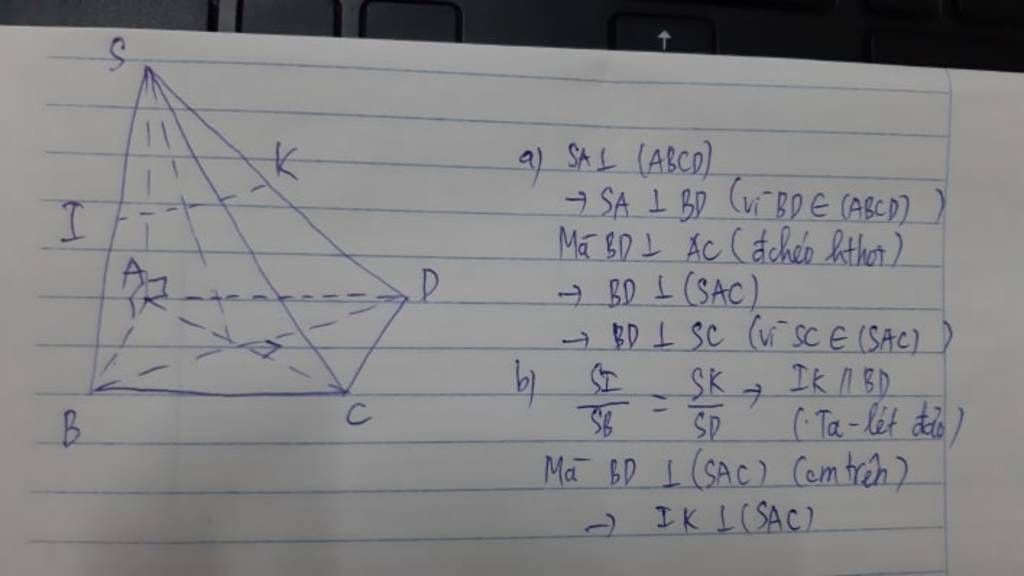 S
K
I
A
D
B
C
a) SA ⊥ (ABCD)
→ SA ⊥ BD (vì BD ∈ (ABCD))
Mà BD ⊥ AC (đchéo hthoi)
→ BD ⊥ (SAC)
→ BD ⊥ SC (vì SC ∈ (SAC))
b) SI/SB = SK/SD → IK // BD
(Ta-lét đảo)
Mà BD ⊥ (SAC) (cm trên)
→ IK ⊥ (SAC)